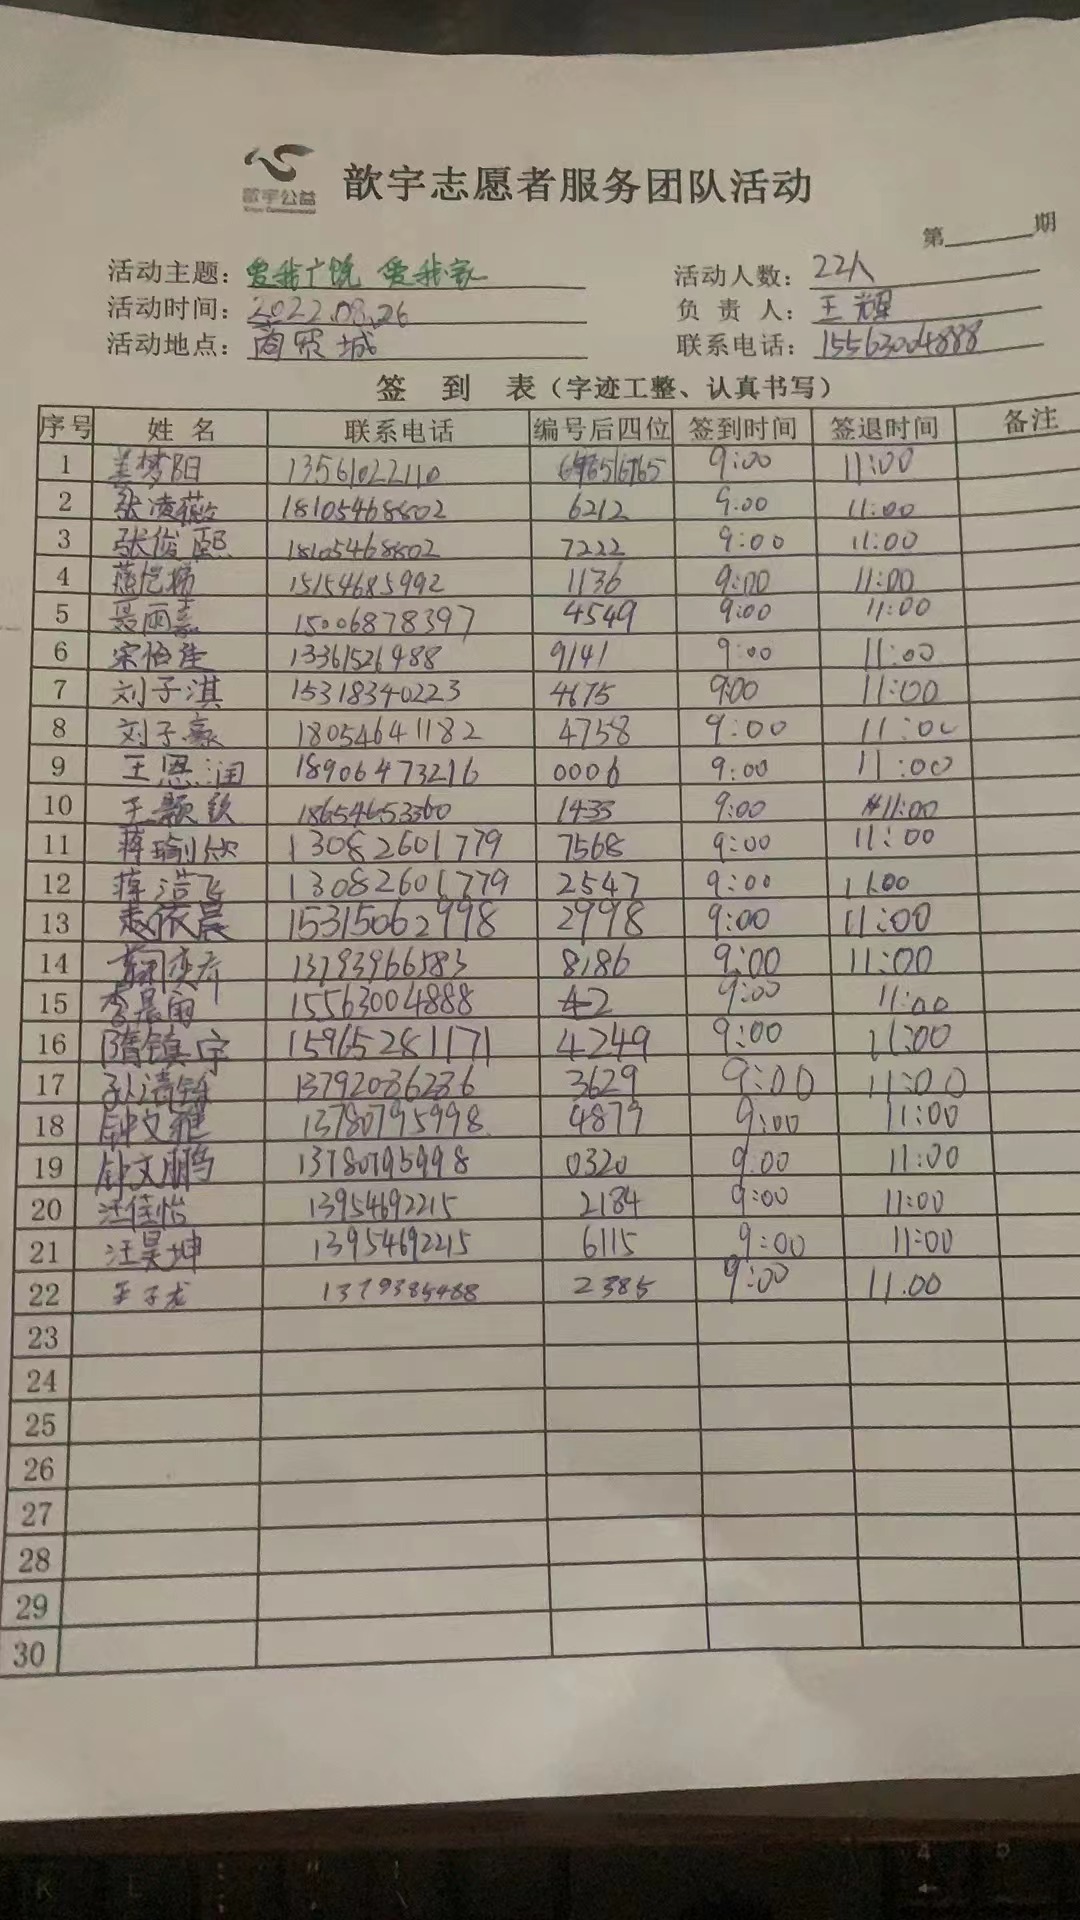 歆宇公益
歆宇志愿者服务团队活动
第 期
活动主题：爱我广饶 爱我家 活动人数：22人
活动时间：2022.08.26 负责人：王辉
活动地点：商贸城 联系电话：15563004888
签 到 表（字迹工整、认真书写）
序号 姓名 联系电话 编号后四位 签到时间 签退时间 备注
1 姜梦阳 13561022110 9:00 11:00
2 张凌薇 18105468802 6212 9:00 11:00
3 张俊熙 18105468802 7222 9:00 11:00
4 15154685992 1136 9:00 11:00
5 聂雨嘉 15006878397 4549 9:00 11:00
6 13361526488 9141 9:00 11:00
7 刘子淇 15318340223 4675 9:00 11:00
8 刘子豪 18054641182 4758 9:00 11:00
9 王恩润 18906473216 0006 9:00 11:00
10 王颢钦 18654653360 1433 9:00 11:00
11 蒋瑜欣 13082601779 7568 9:00 11:00
12 蒋浩飞 13082601779 2547 9:00 11:00
13 袁依晨 15315062998 2998 9:00 11:00
14 13793966583 8186 9:00 11:00
15 李晨雨 15563004888 42 9:00 11:00
16 隋镇宇 15965281171 4249 9:00 11:00
17 13792036236 3629 9:00 11:00
18 钟文雅 13780795998 4879 9:00 11:00
19 钟文鹏 13780795998 0320 9:00 11:00
20 汪佳怡 13954692215 2184 9:00 11:00
21 汪昊坤 13954692215 6115 9:00 11:00
22 王子龙 1379385488 2385 9:00 11.00
23
24
25
26
27
28
29
30